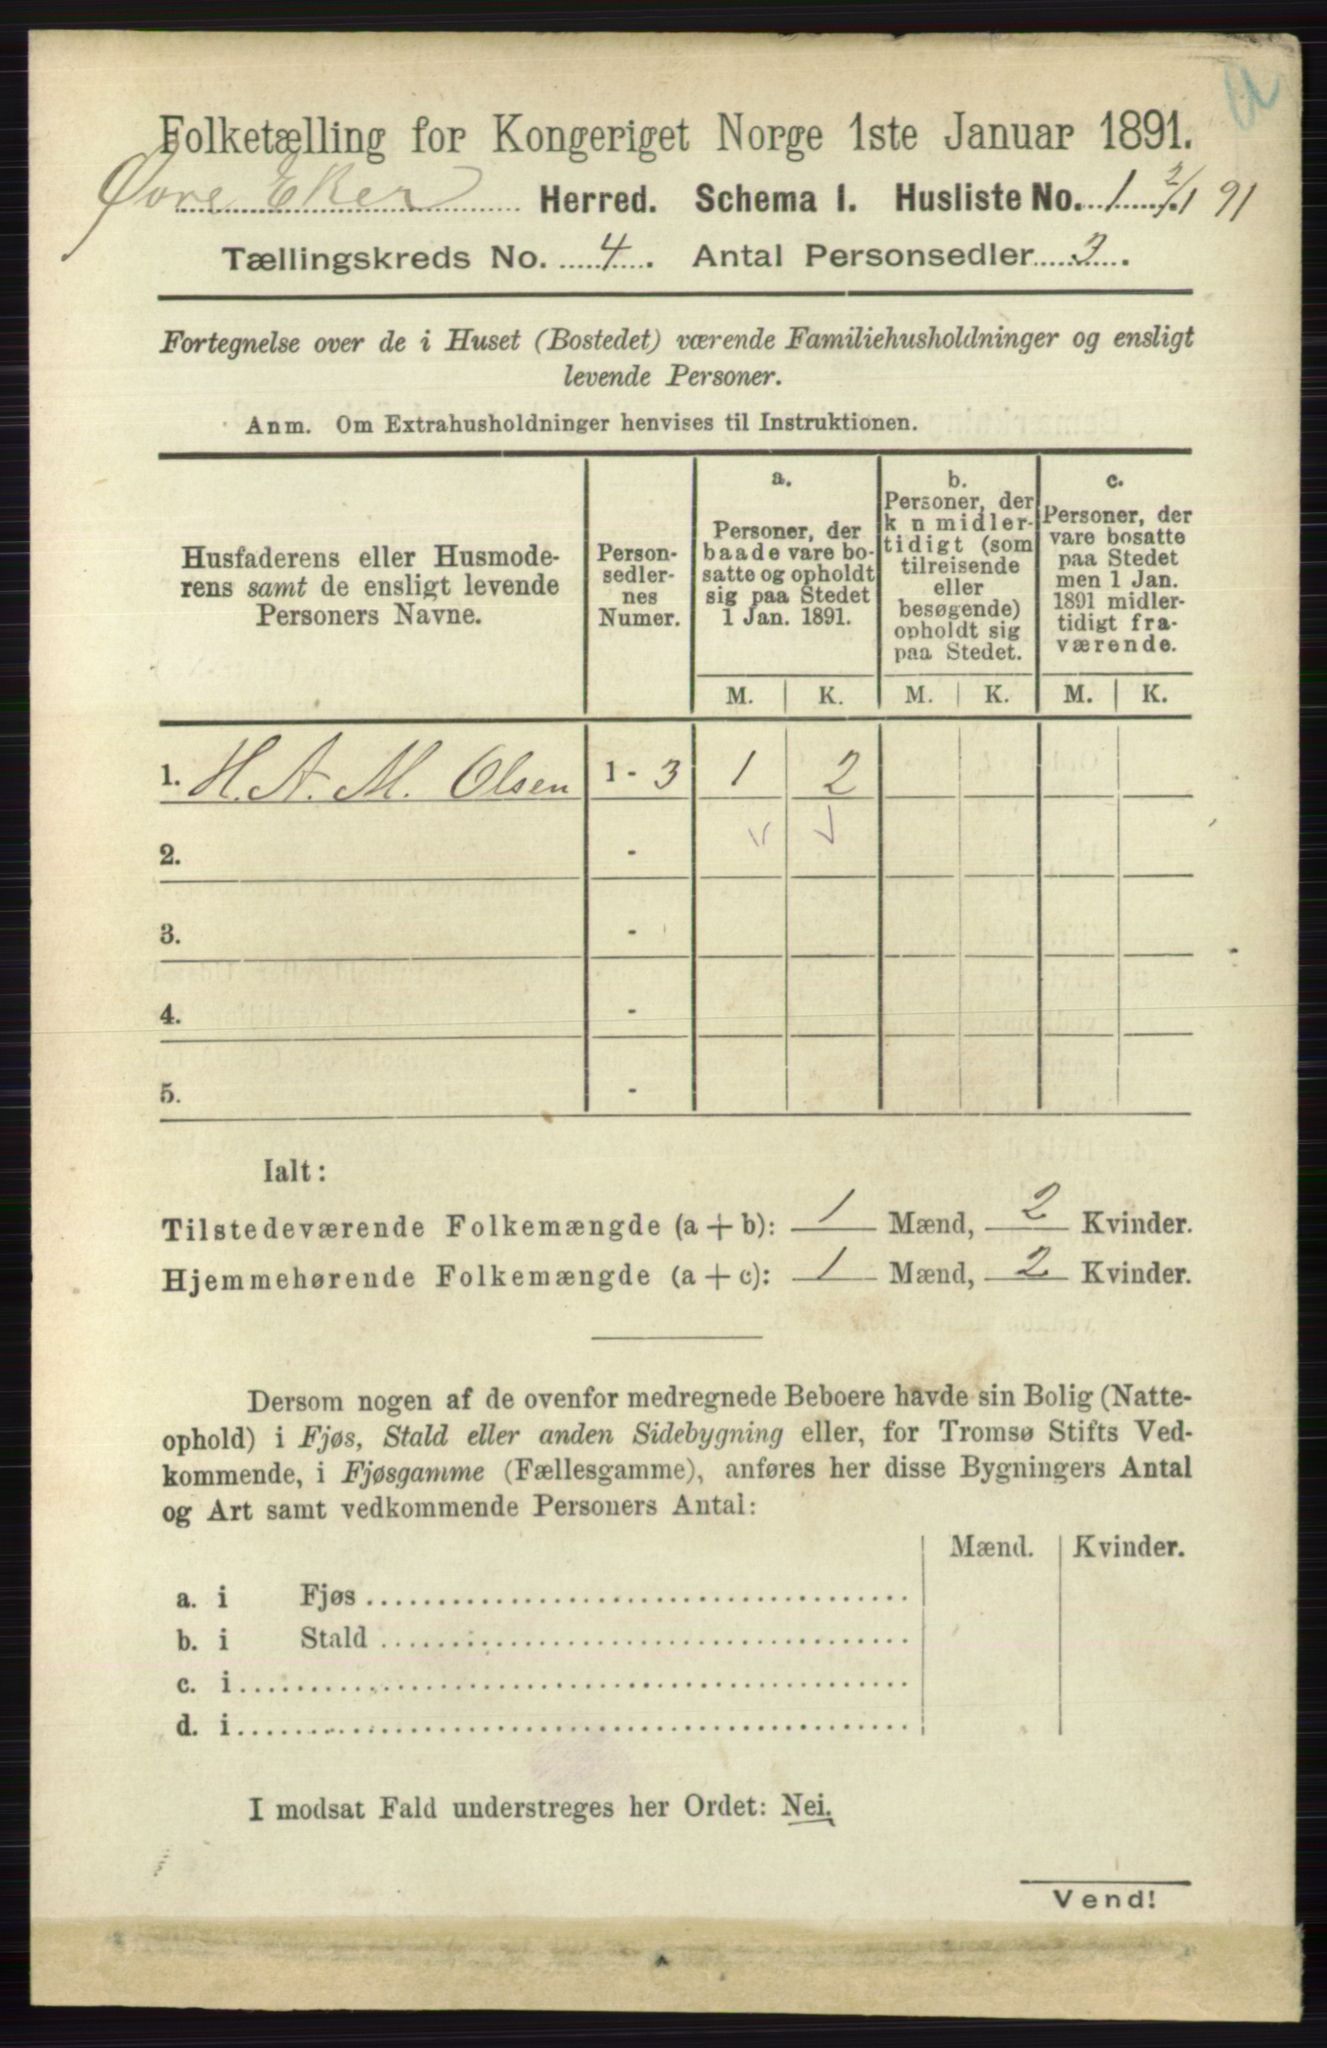 Folketælling for Kongeriget Norge 1ste Januar 1891.
Øvre Eker Herred. Schema I. Husliste No. 1 2/1 91
Tællingskreds No. 4. Antal Personsedler 3.
Fortegnelse over de i Huset (Bostedet) værende Familiehusholdninger og ensligt
levende Personer.
Anm. Om Extrahusholdninger henvises til Instruktionen.
Husfaderens eller Husmode-
rens samt de ensligt levende
Personers Navne.
Person-
sedler-
nes
Numer.
a.
Personer, der
baade vare bo-
satte og opholdt
sig paa Stedet
1 Jan. 1891.
b.
Personer, der
k n midler-
tidigt (som
tilreisende
eller
besøgende)
opholdt sig
paa Stedet.
c.
Personer, der
vare bosatte
paa Stedet
men 1 Jan.
1891 midler-
tidigt fra-
værende.
M. K. M. K. M. K.
1. H. A. M. Olsen 1 - 3 1 2
2. -
3. -
4. -
5. -
Ialt:
Tilstedeværende Folkemængde (a + b): 1 Mænd, 2 Kvinder.
Hjemmehørende Folkemængde (a + c): 1 Mænd, 2 Kvinder.
Dersom nogen af de ovenfor medregnede Beboere havde sin Bolig (Natte-
ophold) i Fjøs, Stald eller anden Sidebygning eller, for Tromsø Stifts Ved-
kommende, i Fjøsgamme (Fællesgamme), anføres her disse Bygningers Antal
og Art samt vedkommende Personers Antal:
Mænd. Kvinder.
a. i Fjøs
b. i Stald
c. i
d. i
I modsat Fald understreges her Ordet: Nei.
Vend!